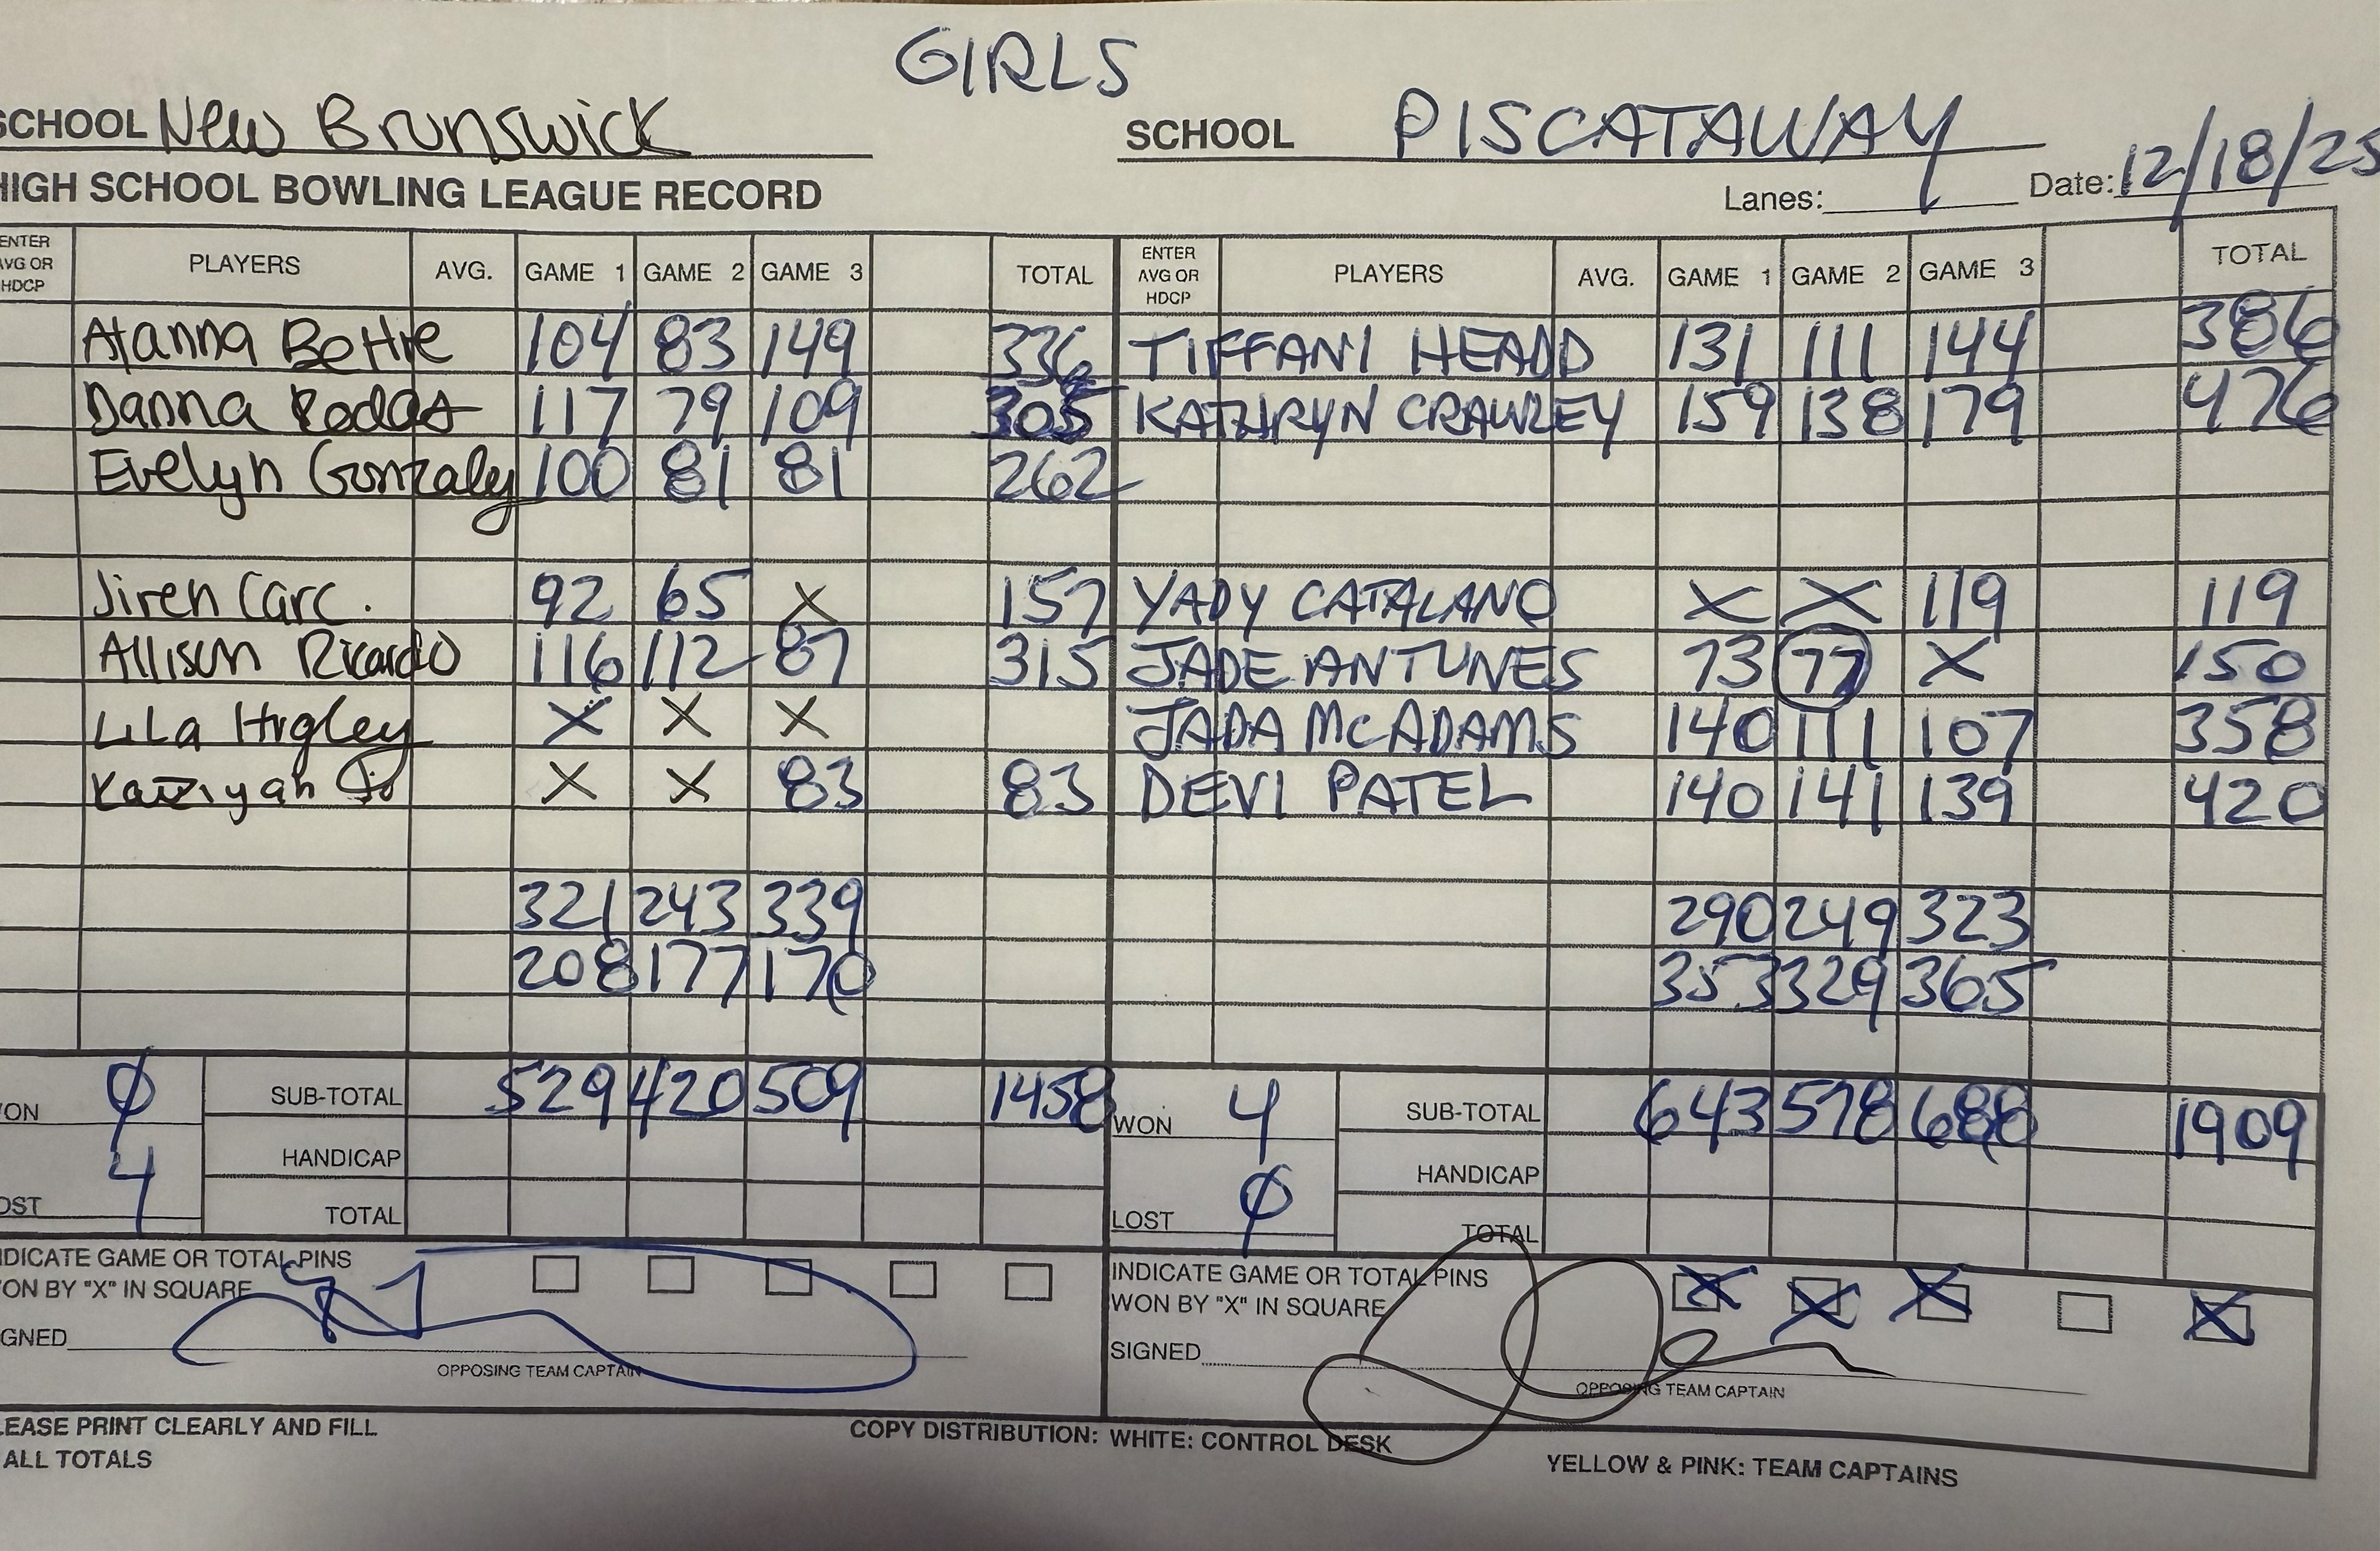 GIRLS
SCHOOL New Brunswick SCHOOL PISCATAWAY
HIGH SCHOOL BOWLING LEAGUE RECORD Lanes: Date: 12/18/25
ENTER AVG OR HDCP PLAYERS AVG. GAME 1 GAME 2 GAME 3 TOTAL ENTER AVG OR HDCP PLAYERS AVG. GAME 1 GAME 2 GAME 3 TOTAL
104 83 149 336 TIFFANI HEADD 131 111 144 386
Danna Rodas 117 79 109 305 KATHRYN CRAWLEY 159 138 179 476
Evelyn Gonzalez 100 81 81 262
Jiren Carc. 92 65 X 157 YADY CATALANO X X 119 119
Allison Ricardo 116 112 87 315 JADE ANTUNES 73 77 X 150
LiLa Higley X X X JADA MCADAMS 140 111 107 358
X X 83 83 DEVI PATEL 140 141 139 420
321 243 339 290 249 323
208 177 170 353 329 365
WON 0 SUB-TOTAL 529 420 509 1458 WON 4 SUB-TOTAL 643 578 688 1909
HANDICAP HANDICAP
LOST 4 TOTAL LOST 0 TOTAL
INDICATE GAME OR TOTAL PINS INDICATE GAME OR TOTAL PINS
WON BY "X" IN SQUARE WON BY "X" IN SQUARE X X X X
SIGNED SIGNED
OPPOSING TEAM CAPTAIN OPPOSING TEAM CAPTAIN
PLEASE PRINT CLEARLY AND FILL COPY DISTRIBUTION: WHITE: CONTROL DESK
ALL TOTALS YELLOW & PINK: TEAM CAPTAINS